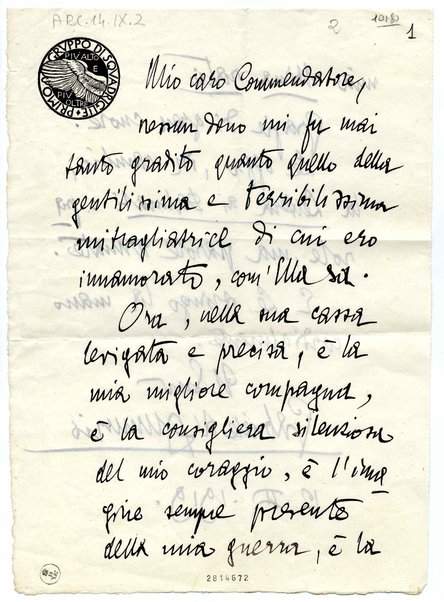 ARC.14.IX.2
2
10180
1
PRIMO GRUPPO DI SQUADRIGLIE
PIV ALTO
E
PIV
OLTRE
Mio caro Commendatore,
nessun dono mi fu mai
tanto gradito quanto quello della
gentilissima e terribilissima
mitragliatrice di cui ero
innamorato, com'Ella sa.
Ora, nella sua cassa
levigata e precisa, è la
mia migliore compagna,
è la consigliera silenziosa
del mio coraggio, è l'ima
gine sempre presente
della mia guerra, è la
2814672